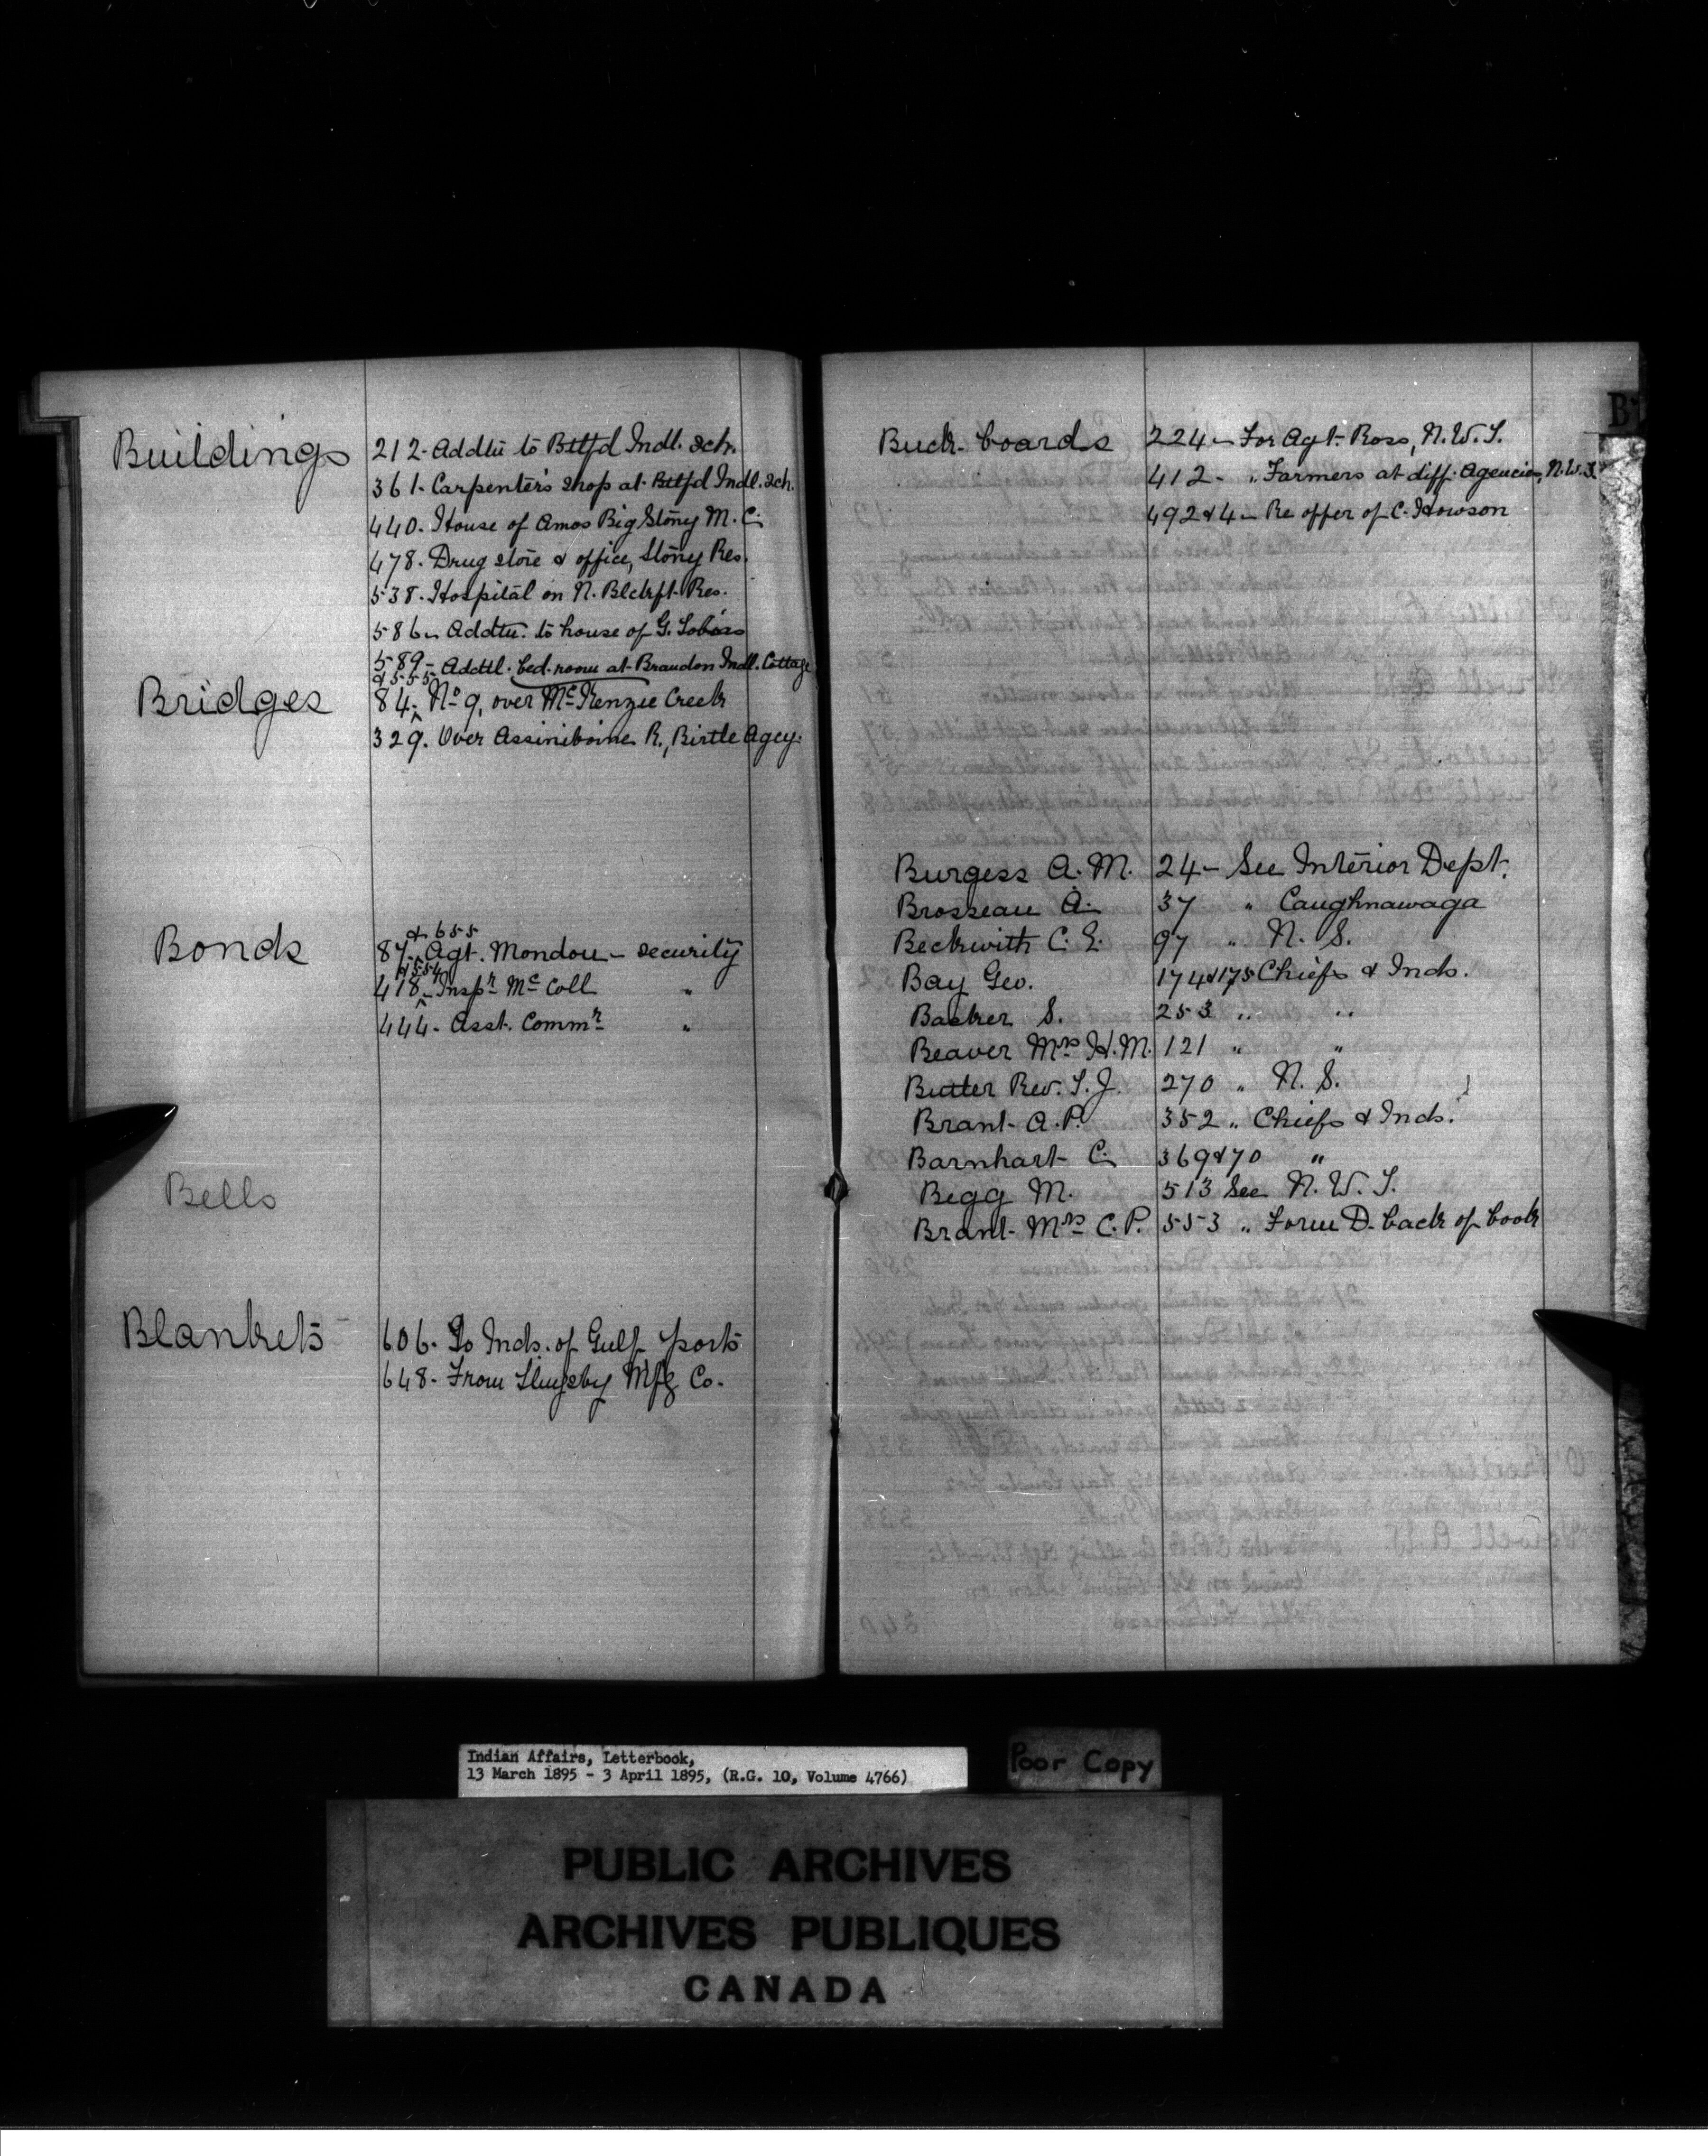 Buildings 212- Addtn to Bttfd Indl. sch.
361- Carpenter's shop at Bttfd Indl. sch.
440- House of Amos Big Stony M. C.
478- Drug store & office, Stony Res.
538- Hospital on N. Blckft. Res.
586- Addtn. to house of G.
589- Addtl. bed-room at Brandon Indl. Cottage
& 555
Bridges 84- No 9, over McKenzie Creek
329. Over Assiniboine R., Birtle Agey.
& 655
Bonds 87- Agt. Mondou - security
& 554
418- Inspr McColl "
444- Asst. Commr "
Bells
Blankets 606- To Inds. of Gulf ports
648- From Slingsby Mfg Co.
B
Buck-boards 224- For Agt. Ross, N.W.T.
412- " Farmers at diff. Agencies, N.W.T.
492 & 4- Re offer of C. Howson
Burgess A. M. 24- See Interior Dept.
Brosseau A. 37 " Caughnawaga
Beckwith C. E. 97 " N. S.
Bay Geo. 174 & 175 Chiefs & Inds.
Barker S. 253 " "
Beaver Mrs H. M. 121 " "
Butler Rev. T. J. 270 " N. S.
Brant A. P. 352 " Chiefs & Inds.
Barnhart C. 369 & 70 "
Begg M. 513 See N. W. T.
Brant Mrs C. P. 553 " Form D. back of book
Indian Affairs, Letterbook,
13 March 1895 - 3 April 1895, (R.G. 10, Volume 4766)
Poor Copy
PUBLIC ARCHIVES
ARCHIVES PUBLIQUES
CANADA